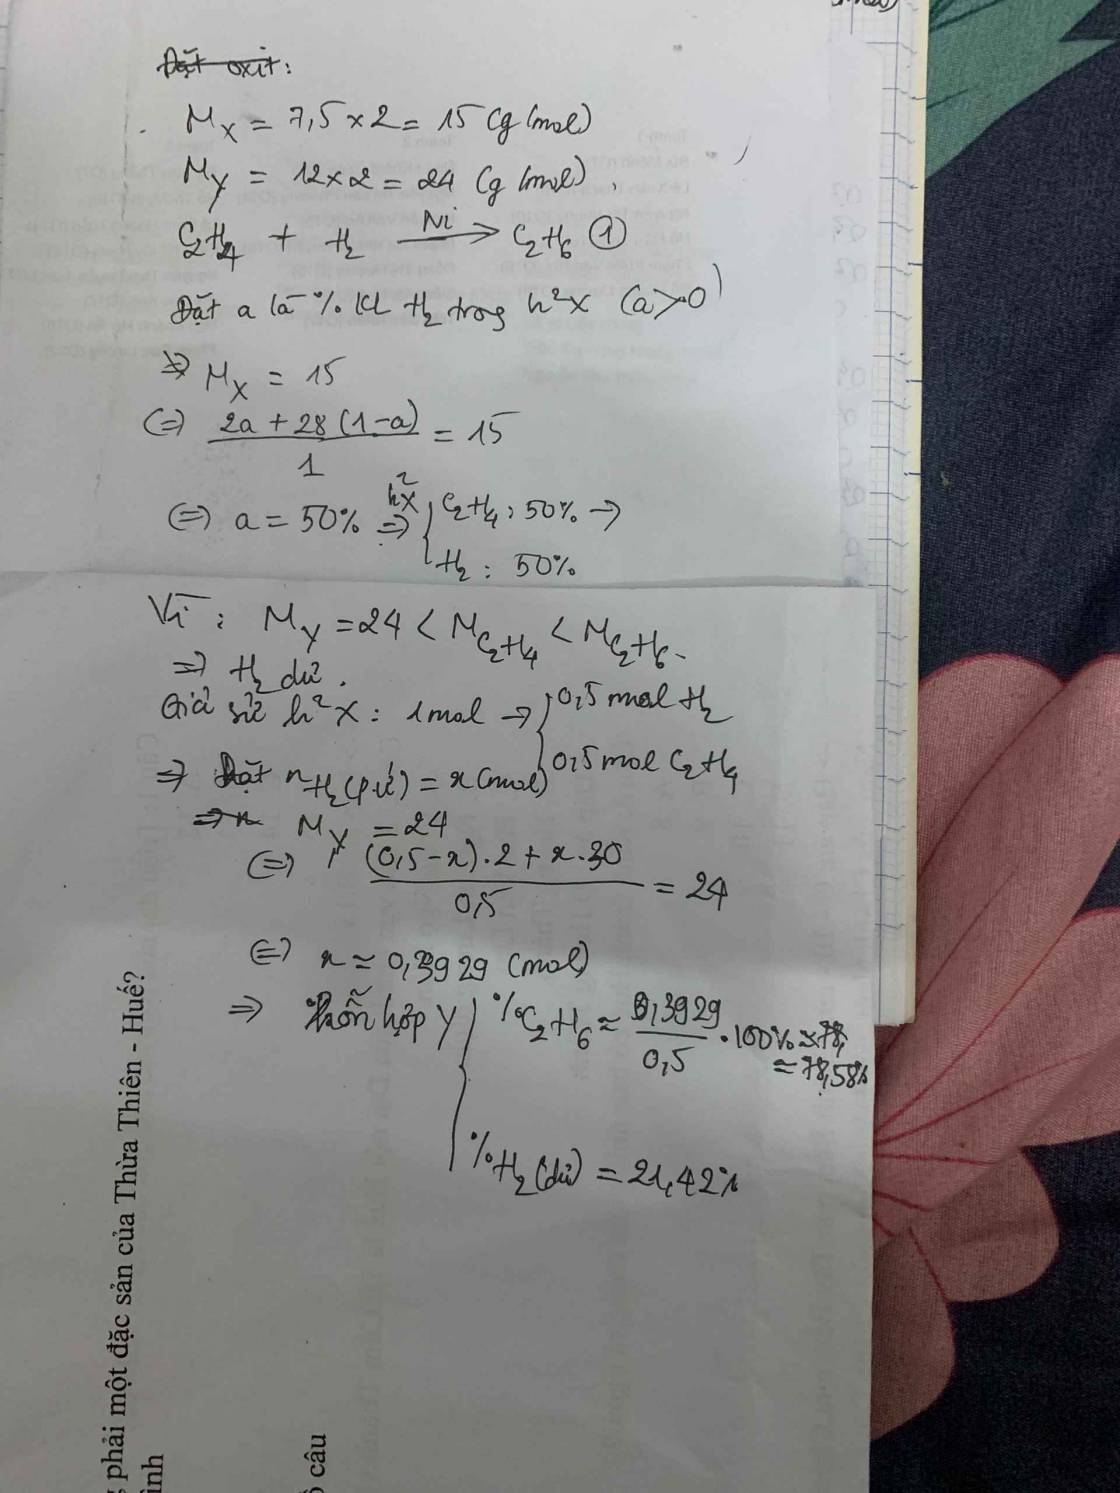 Đặt oxit:
M_X = 7,5 × 2 = 15 (g/mol)
M_Y = 12×2 = 24 (g/mol)
C2H4 + H2 —Ni→ C2H6 ①
Đặt a là % H2 trong h² X (a>0)
=> M_X = 15
(=) (2a + 28(1-a))/1 = 15
(=) a = 50% => h²X { C2H4: 50% →
H2: 50%
Vì: M_Y = 24 < M_C2H4 < M_C2H6.
=> H2 dư.
Giả sử h² X: 1 mol → { 0,5 mol H2
0,5 mol C2H4
=> Đặt n_H2(pứ) = x (mol)
=> n M_Y = 24
(=) ((0,5-x).2 + x.30)/0,5 = 24
(=) x ≈ 0,3929 (mol)
=> hỗn hợp Y { %C2H6 ≈ 0,3929/0,5 . 100% ≈ 78,
≈ 78,58%
%H2(dư) = 21,42%
phải một đặc sản của Thừa Thiên - Huế?
ình
câu